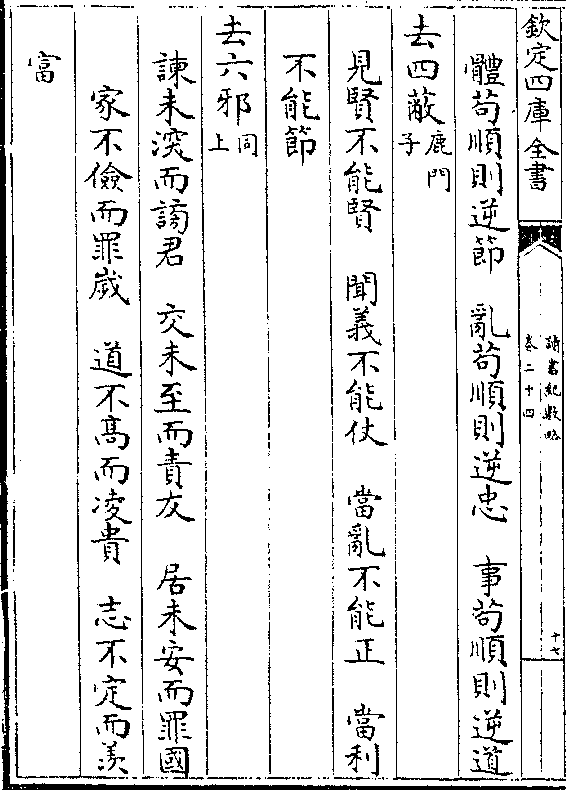 欽定四庫全書
讀書紀數略
卷二十四
十七
體苟順則逆節　亂苟順則逆忠　事苟順則逆道
去四蔽鹿門子
見賢不能賢　聞義不能仗　當亂不能正　當利
不能節
去六邪同上
諫未深而謗君　交未至而責友　居未安而罪國
家不儉而罪歲　道不高而凌貴　志不定而羡
富